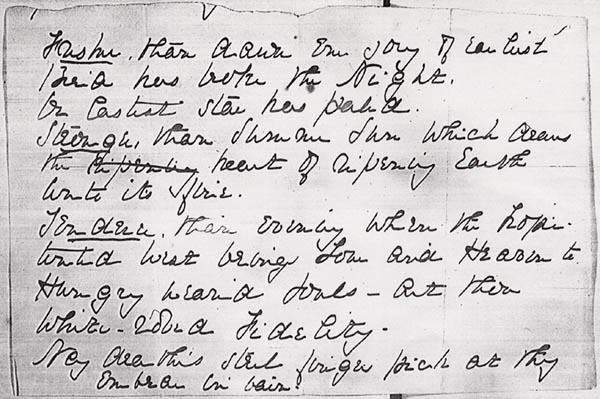 Fresher, than dawn ere song of earliest
Bird has broke the Night.
Or Eastest star has paled.
Stronger, than Summer Sun which draws
the ripening heart of ripening Earth
unto its fire.
Tenderer, than evening when the hope-
west bring Home and Heaven to
Hungry wearied Souls – art thou
White-robed Fidelity.
Nay death's steel fingers pick at thy
in vain.